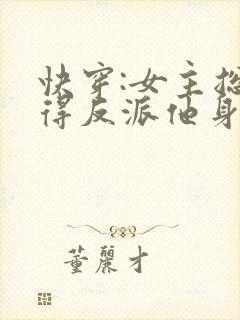 快穿:女主总
得反派他身
董丽才